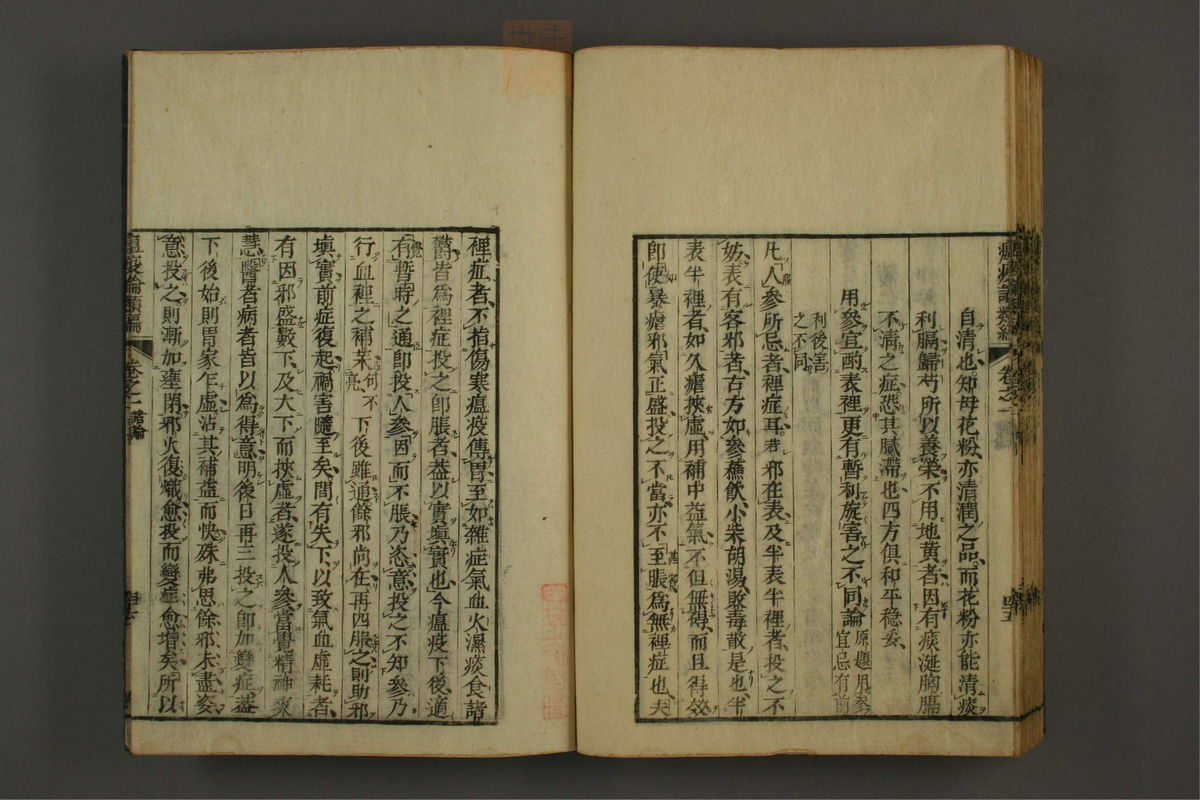 自清也知母花粉亦清潤之品而花粉亦能清痰
利膈歸芍所以養榮不用地黃者因有痰涎胸膈
不清之症恐其膩滯也四方俱和平穩妥
用參宜酌表裡更有暫利旋害之不同論
原題用參
宜忌有前
利後害
之不同
凡人參所忌者裡症耳若邪在表及半表半裡者投之不
妨表有客邪者古方如參蘇飲小柴胡湯敗毒散是也半
表半裡者如久瘧挾虛用補中益氣不但無碍而且得效
即使暴瘧邪氣正盛投之不當亦不至脹為無裡症也夫
裡症者不指傷寒瘟疫傳胃至如雜症氣血火濕痰食諸
鬱皆為裡症投之即脹者蓋以實填實也今瘟疫下後適
有暫時之通即投人參因而不脹乃恣意投之不知參乃
行血裡之補藥
下後雖通餘邪尚在再四服之則助邪
填實前症復起禍害隨至矣間有失下以致氣血虛耗者
有因邪盛數下及大下而挾虛者遂投人參當覺精神爽
慧醫者病者皆以為得意明後日再三投之即加變症蓋
下後始則胃家乍虛沾其補益而快殊弗思餘邪未盡恣
意投之則漸加壅閉邪火復熾愈投而變症愈增矣所以
瘟疫論類編
卷之一 諸論